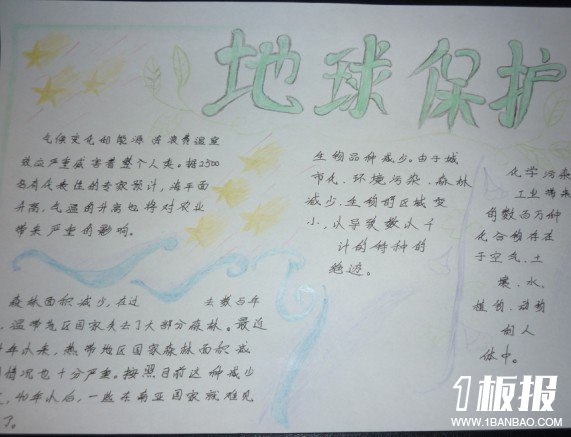 地球保护
气候变化和能源浪费温室
效应严重威害着整个人类。据2500
名有代表性的专家预计,海平面
升高,气温的升高也将对农业
带来严重的影响。
生物品种减少。由于城
市化、环境污染、森林
减少、生物的区域变
小,以导致数以千
计的物种的
绝迹。
化学污染
工业带来
的数百万种
化合物存在
于空气、土
壤、水、
植物、动物
和人
体中。
森林面积减少,在过 去数百年
,温带地区国家失去了大部分森林。最近
年以来,热带地区国家森林面积减
情况也十分严重。按照目前这种减少
,40年以后,一些东南亚国家就难见
了。
1板报
WWW.1BANBAO.COM